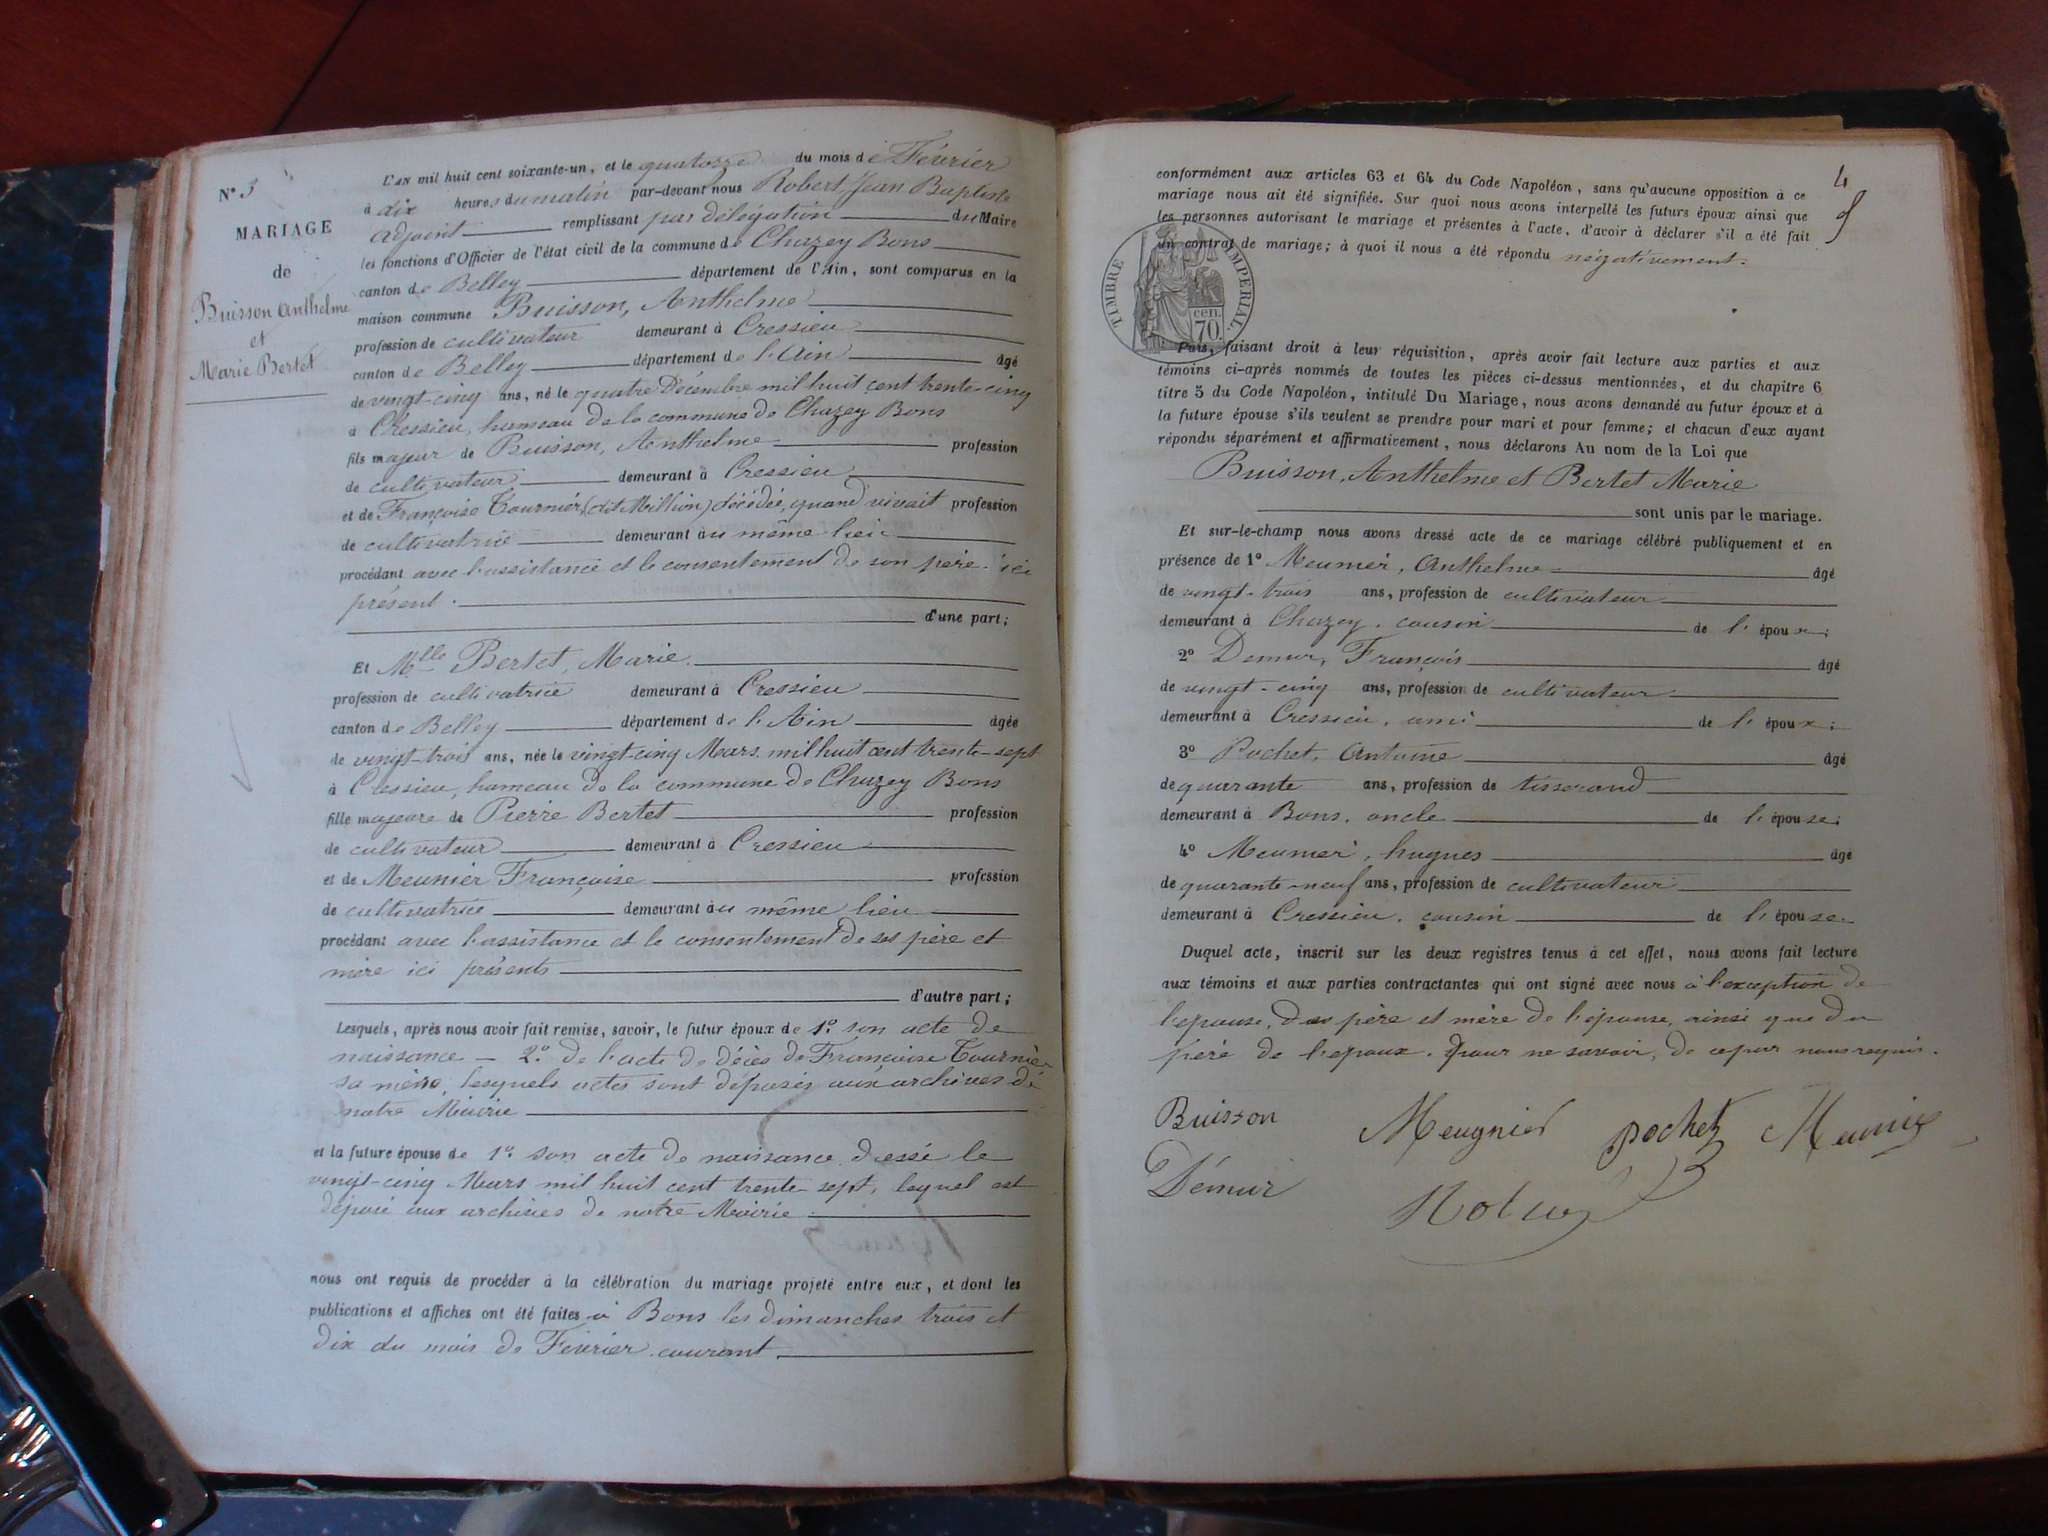 N° 3
MARIAGE
de
Buisson Anthelme
et
Marie Bertet
L'AN mil huit cent soixante-un, et le quatorze du mois de Février
à dix heures du matin par-devant nous Robert, Jean Baptiste
adjoint remplissant par délégation du Maire
les fonctions d'Officier de l'état civil de la commune de Chazey Bons
canton de Belley département de l'Ain, sont comparus en la
maison commune Buisson, Anthelme
profession de cultivateur demeurant à Cressieu
canton de Belley département de l'Ain âgé
de vingt-cinq ans, né le quatre Décembre mil huit cent trente-cinq
à Cressieu, hameau de la commune de Chazey Bons
fils majeur de Buisson, Anthelme profession
de cultivateur demeurant à Cressieu
et de Françoise Tournier, (dit Million) décédée, quand vivait profession
de cultivatrice demeurant au même lieu
procédant avec l'assistance et le consentement de son père ici
présent.
d'une part;
Et Mlle Bertet, Marie.
profession de cultivatrice demeurant à Cressieu
canton de Belley département de l'Ain âgée
de vingt-trois ans, née le vingt-cinq Mars mil huit cent trente-sept
à Cressieu, hameau de la commune de Chazey Bons
fille majeure de Pierre Bertet profession
de cultivateur demeurant à Cressieu
et de Meunier Françoise profession
de cultivatrice demeurant au même lieu
procédant avec l'assistance et le consentement de ses père et
mère ici présents
d'autre part;
Lesquels, après nous avoir fait remise, savoir, le futur époux de 1° son acte de
naissance - 2° de l'acte de décès de Françoise Tournier
sa mère, lesquels actes sont déposés aux archives de
notre Mairie
et la future épouse de 1° son acte de naissance dressé le
vingt-cinq Mars mil huit cent trente sept, lequel est
déposé aux archives de notre Mairie
nous ont requis de procéder à la célébration du mariage projeté entre eux, et dont les
publications et affiches ont été faites à Bons les dimanches trois et
dix du mois de Février courant
4
conformément aux articles 63 et 64 du Code Napoléon, sans qu'aucune opposition à ce
mariage nous ait été signifiée. Sur quoi nous avons interpellé les futurs époux ainsi que
les personnes autorisant le mariage et présentes à l'acte, d'avoir à déclarer s'il a été fait
un contrat de mariage; à quoi il nous a été répondu négativement.
TIMBRE IMPERIAL
70 cen.
Puis, faisant droit à leur réquisition, après avoir fait lecture aux parties et aux
témoins ci-après nommés de toutes les pièces ci-dessus mentionnées, et du chapitre 6
titre 5 du Code Napoléon, intitulé Du Mariage, nous avons demandé au futur époux et à
la future épouse s'ils veulent se prendre pour mari et pour femme; et chacun d'eux ayant
répondu séparément et affirmativement, nous déclarons Au nom de la Loi que
Buisson, Anthelme et Bertet Marie
sont unis par le mariage.
Et sur-le-champ nous avons dressé acte de ce mariage célébré publiquement et en
présence de 1° Meunier, Anthelme âgé
de vingt-trois ans, profession de cultivateur
demeurant à Chazey, cousin de l'époux;
2° Demur, François âgé
de vingt-cinq ans, profession de cultivateur
demeurant à Cressieu, ami de l'époux;
3° Pochet, Antoine âgé
de quarante ans, profession de tisserand
demeurant à Bons, oncle de l'épouse;
4° Meunier, hugues âgé
de quarante-neuf ans, profession de cultivateur
demeurant à Cressieu, cousin de l'épouse
Duquel acte, inscrit sur les deux registres tenus à cet effet, nous avons fait lecture
aux témoins et aux parties contractantes qui ont signé avec nous à l'exception de
l'épouse, des père et mère de l'épouse, ainsi que du
père de l'époux. pour ne savoir, de ce par nous requis.
Buisson Meugnier pochet Meunier
Démur